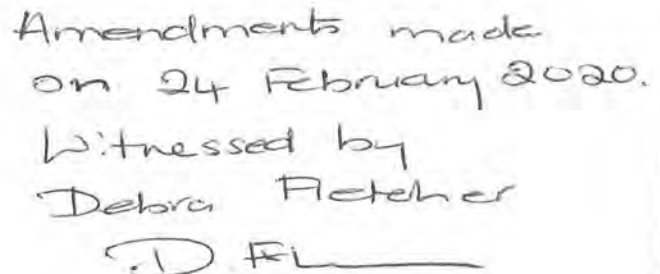 Amendments made
on 24 February 2020.
Witnessed by
Debra Fletcher
D. Fl